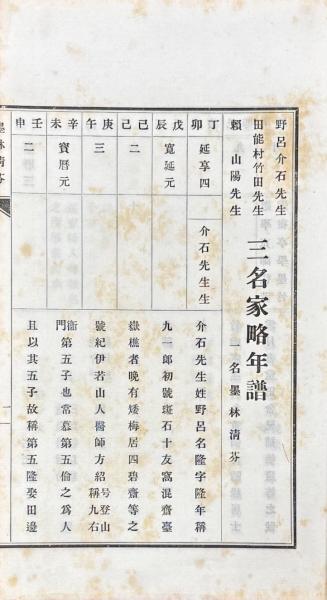 野呂介石先生
田能村竹田先生 三名家略年譜
頼 山陽先生 一名墨林清芬
丁卯 延享四 介石先生生 介石先生姓野呂名隆字隆年稱
戊辰 寛延元 九一郎初號斑石十友窩混齋臺
己巳 二 嶽樵者晩有矮梅居四碧齋等之
庚午 三 號紀伊若山人醫師方紹号登山稱九右
辛未 寶暦元 衞門第五子也嘗慕第五倫之爲人
壬申 二 且以其五子故稱第五隆娶田邊
墨林清芬
一